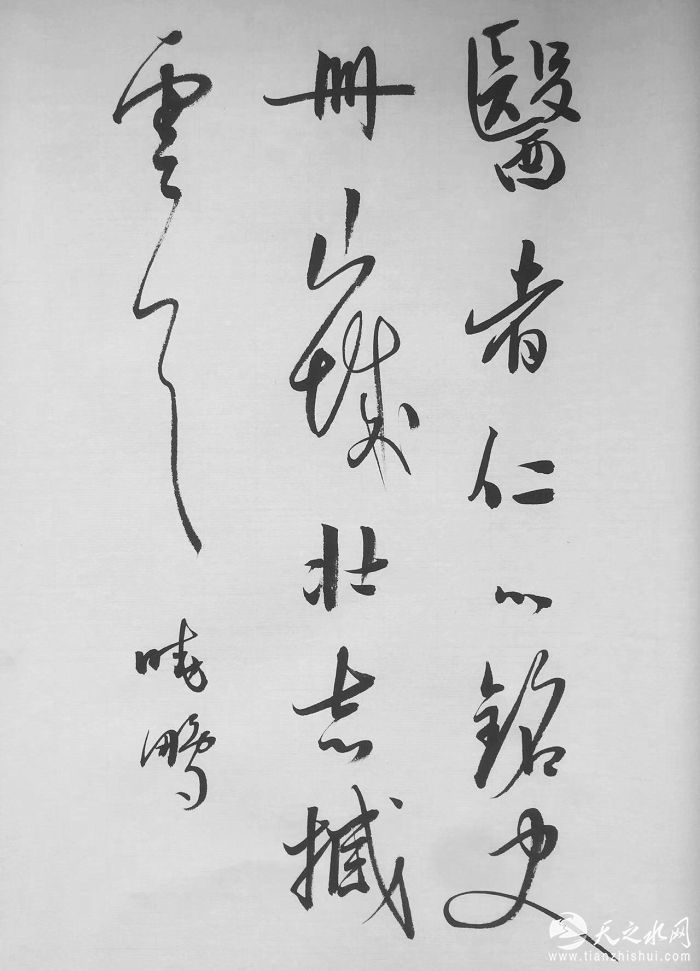 醫者仁心銘史
冊山城壮志撼
雲天
曉鵬
天之水网
www.tianzhishui.com